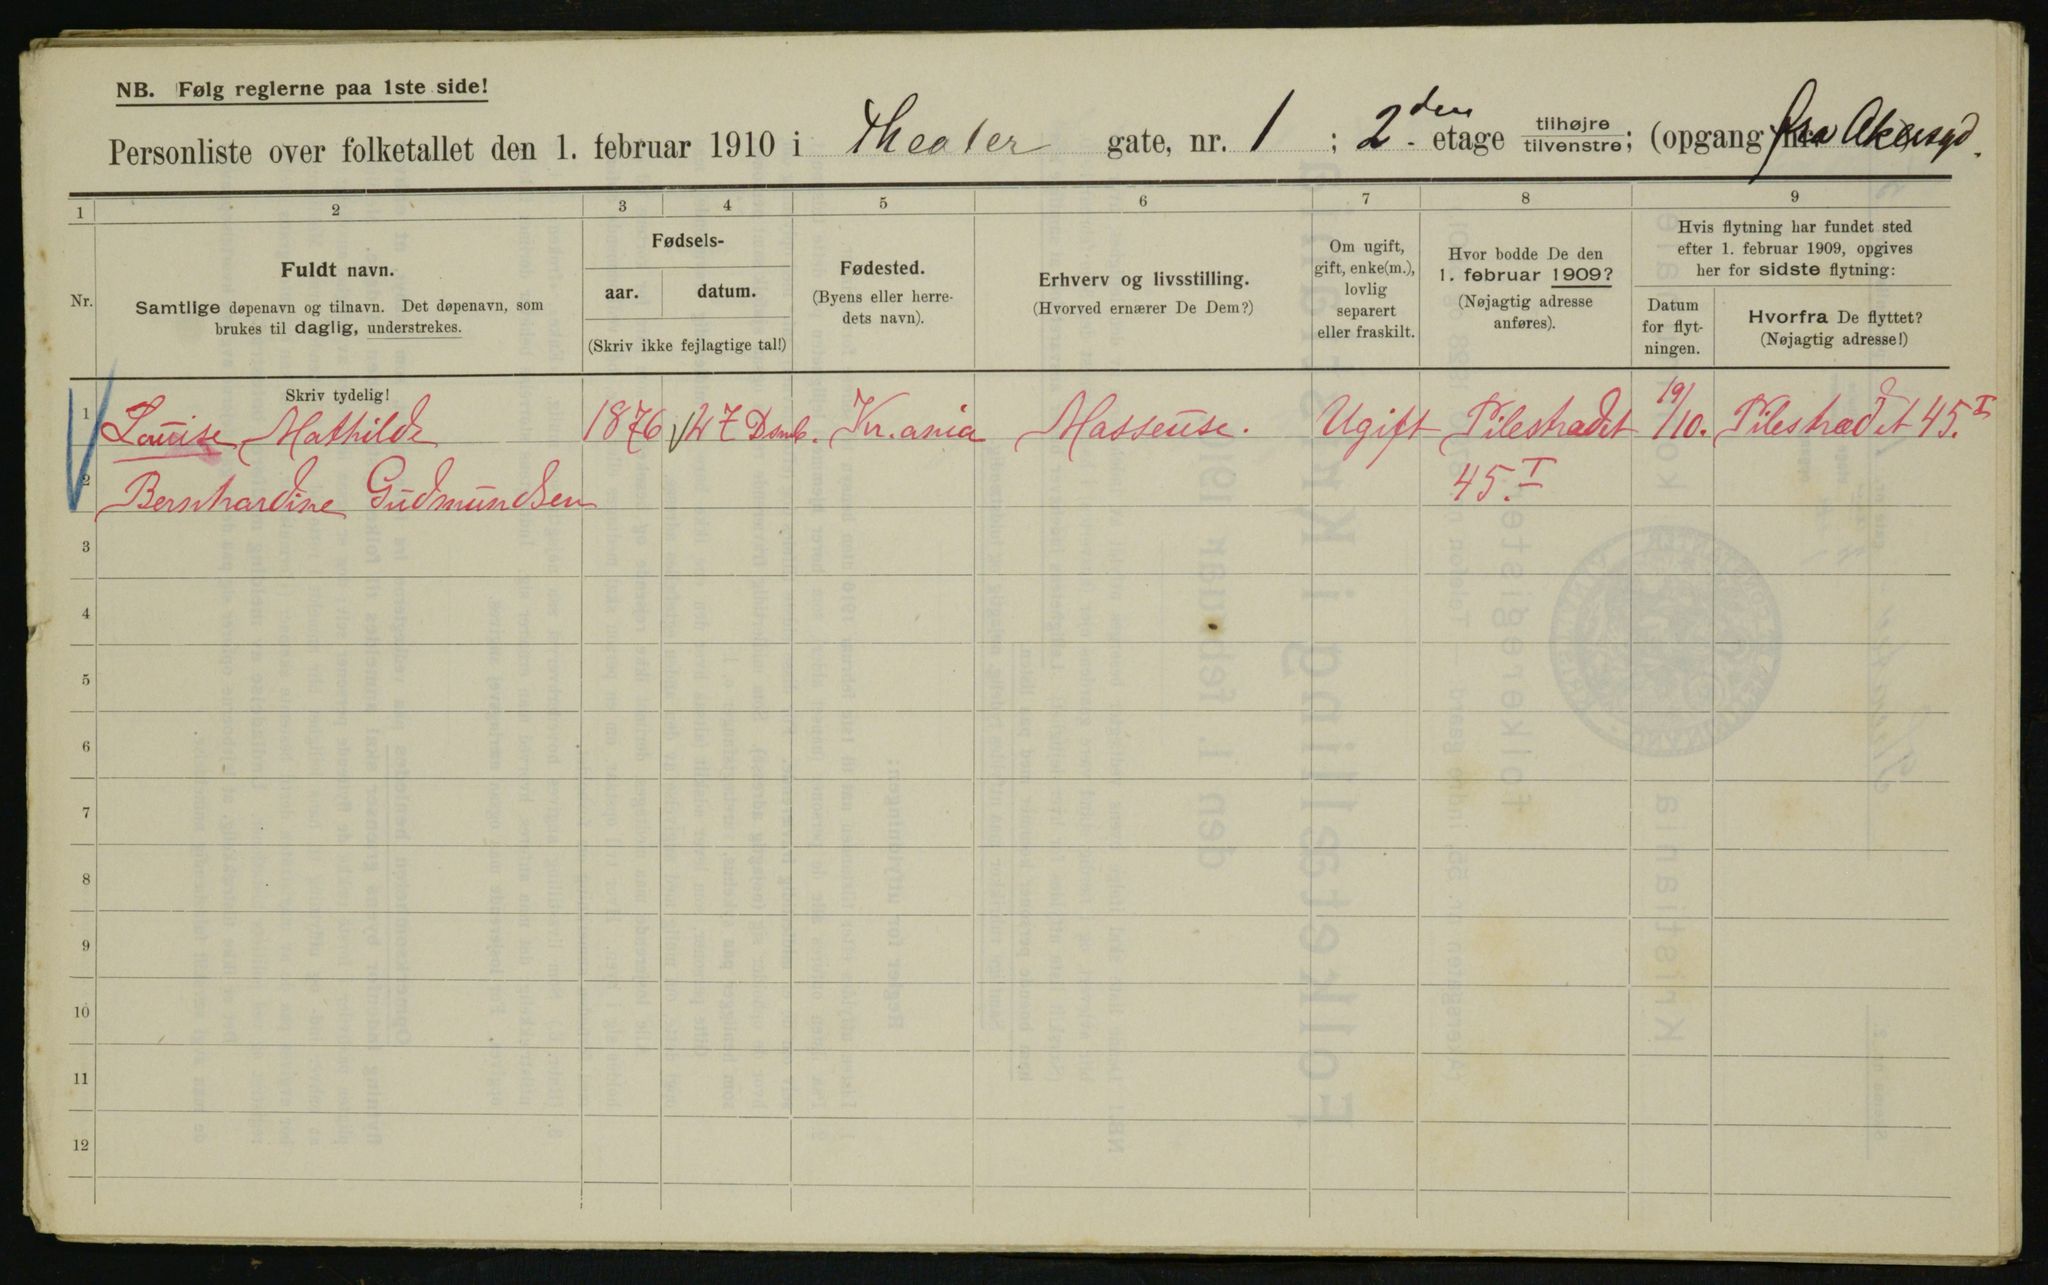 NB. Følg reglerne paa 1ste side!
Personliste over folketallet den 1. februar 1910 i Theater gate, nr. 1 ; 2den etage tilhøjre tilvenstre; (opgang fra Akersgd.
1 2 3 4 5 6 7 8 9
Nr.
Fuldt navn.
Samtlige døpenavn og tilnavn. Det døpenavn, som
brukes til daglig, understrekes.
Skriv tydelig!
Fødsels-
aar. datum.
(Skriv ikke fejlagtige tal!)
Fødested.
(Byens eller herre-
dets navn).
Erhverv og livsstilling.
(Hvorved ernærer De Dem?)
Om ugift,
gift, enke(m.),
lovlig
separert
eller fraskilt.
Hvor bodde De den
1. februar 1909?
(Nøjagtig adresse
anføres).
Hvis flytning har fundet sted
efter 1. februar 1909, opgives
her for sidste flytning:
Datum
for flyt-
ningen.
Hvorfra De flyttet?
(Nøjagtig adresse!)
1 Louise Mathilde 1876 Dsmb. Kr.ania Masseuse. Ugift Pilestrædet 19/10. Pilestrædet 45.I
2 Bernhardine Gudmundsen 45.I
3
4
5
6
7
8
9
10
11
12